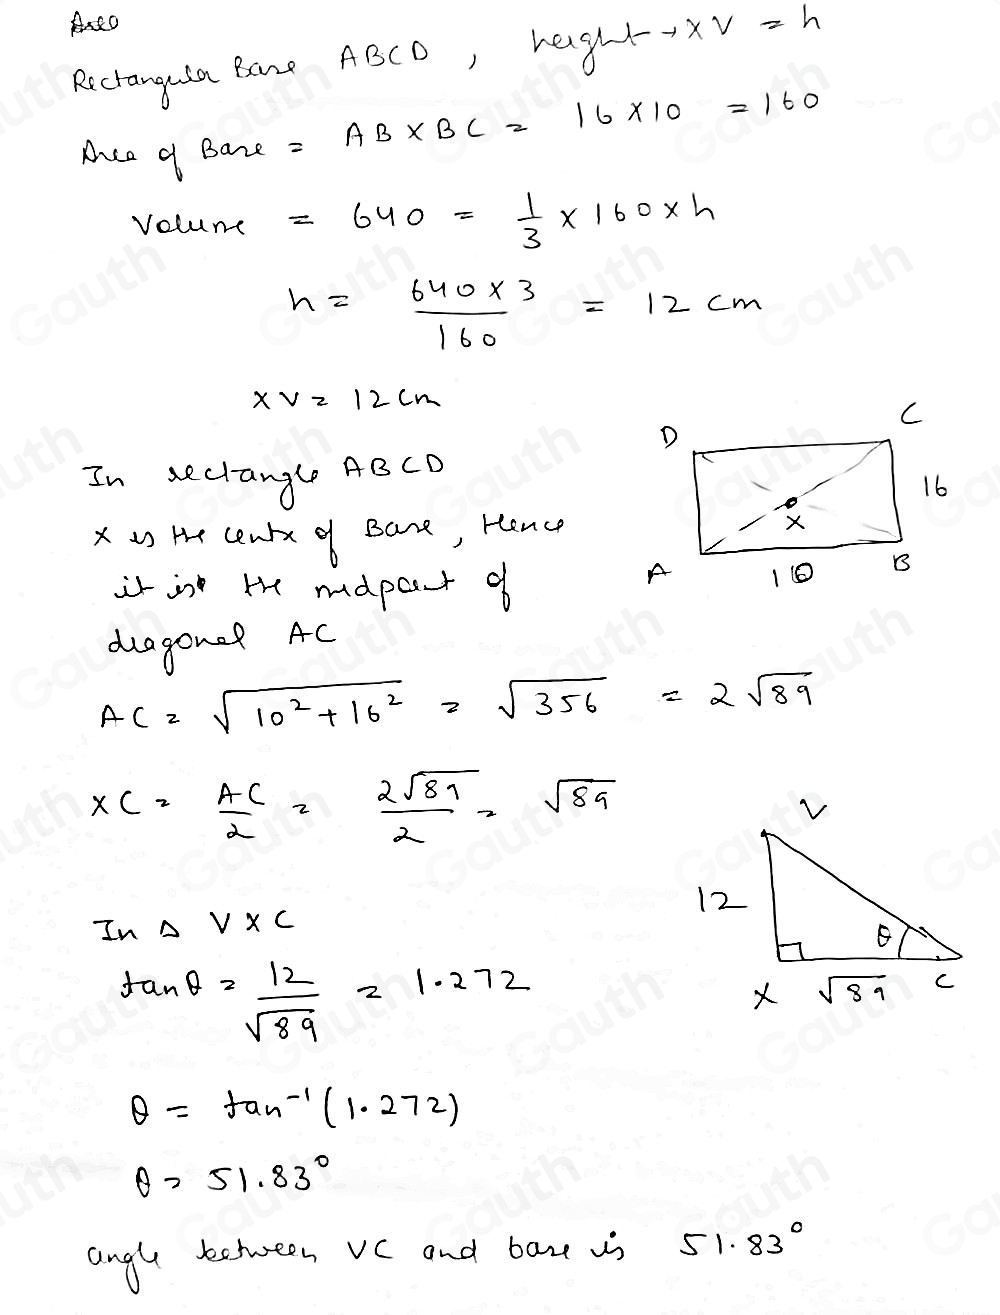 Rectangular Base ABCD, height → XV = h
Area of Base = AB × BC = 16 × 10 = 160
Volume = 640 = 1/3 × 160 × h
h = 640 × 3 / 160 = 12 cm
XV = 12 cm
D C
16
X
A 10 B
In rectangle ABCD
X is the centx of Base, Hence
it is the midpoint of
diagonal AC
AC = √10² + 16² = √356 = 2√89
XC = AC/2 = 2√89/2 = √89
V
12
θ
X √89 C
In Δ VXC
tanθ = 12/√89 = 1.272
θ = tan⁻¹(1.272)
θ = 51.83°
angle between VC and base is 51.83°
Gauth